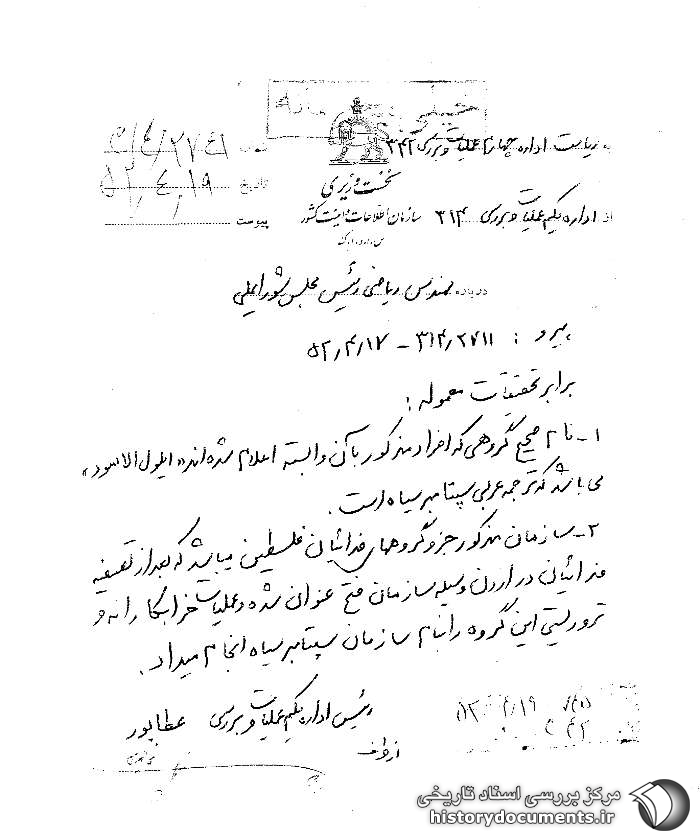 خیلی محرمانه
به ریاست اداره چهارم عملیات و بررسی ۳۴۲
نخست وزیری
سازمان اطلاعات و امنیت کشور
س.ا.و.ا.ک
از اداره یکم عملیات و بررسی ۳۱۴
تاریخ ۵۲/۴/۱۹
پیوست
درباره مهندس ریاضی رئیس مجلس شورایملی
پیرو : ۳۱۴/۲۷۱۱ - ۵۲/۴/۱۷
برابر تحقیقات معموله :
۱- نام صحیح گروهی که افراد مذکور بآن وابسته اعلام شده‌اند «ایلول الاسود»
می باشد که ترجمه عربی سپتامبر سیاه است .
۲- سازمان مذکور جزو گروههای فدائیان فلسطین میباشد که بعد از تصفیه
فدائیان در اردن وسیله سازمان فتح عنوان شده و عملیات خرابکارانه و
تروریستی این گروه را بنام سازمان سپتامبر سیاه انجام میداد .
رئیس اداره یکم عملیات و بررسی عطاپور
از طرف
۵۲/۴/۱۹
مرکز بررسی اسناد تاریخی
historydocuments.ir